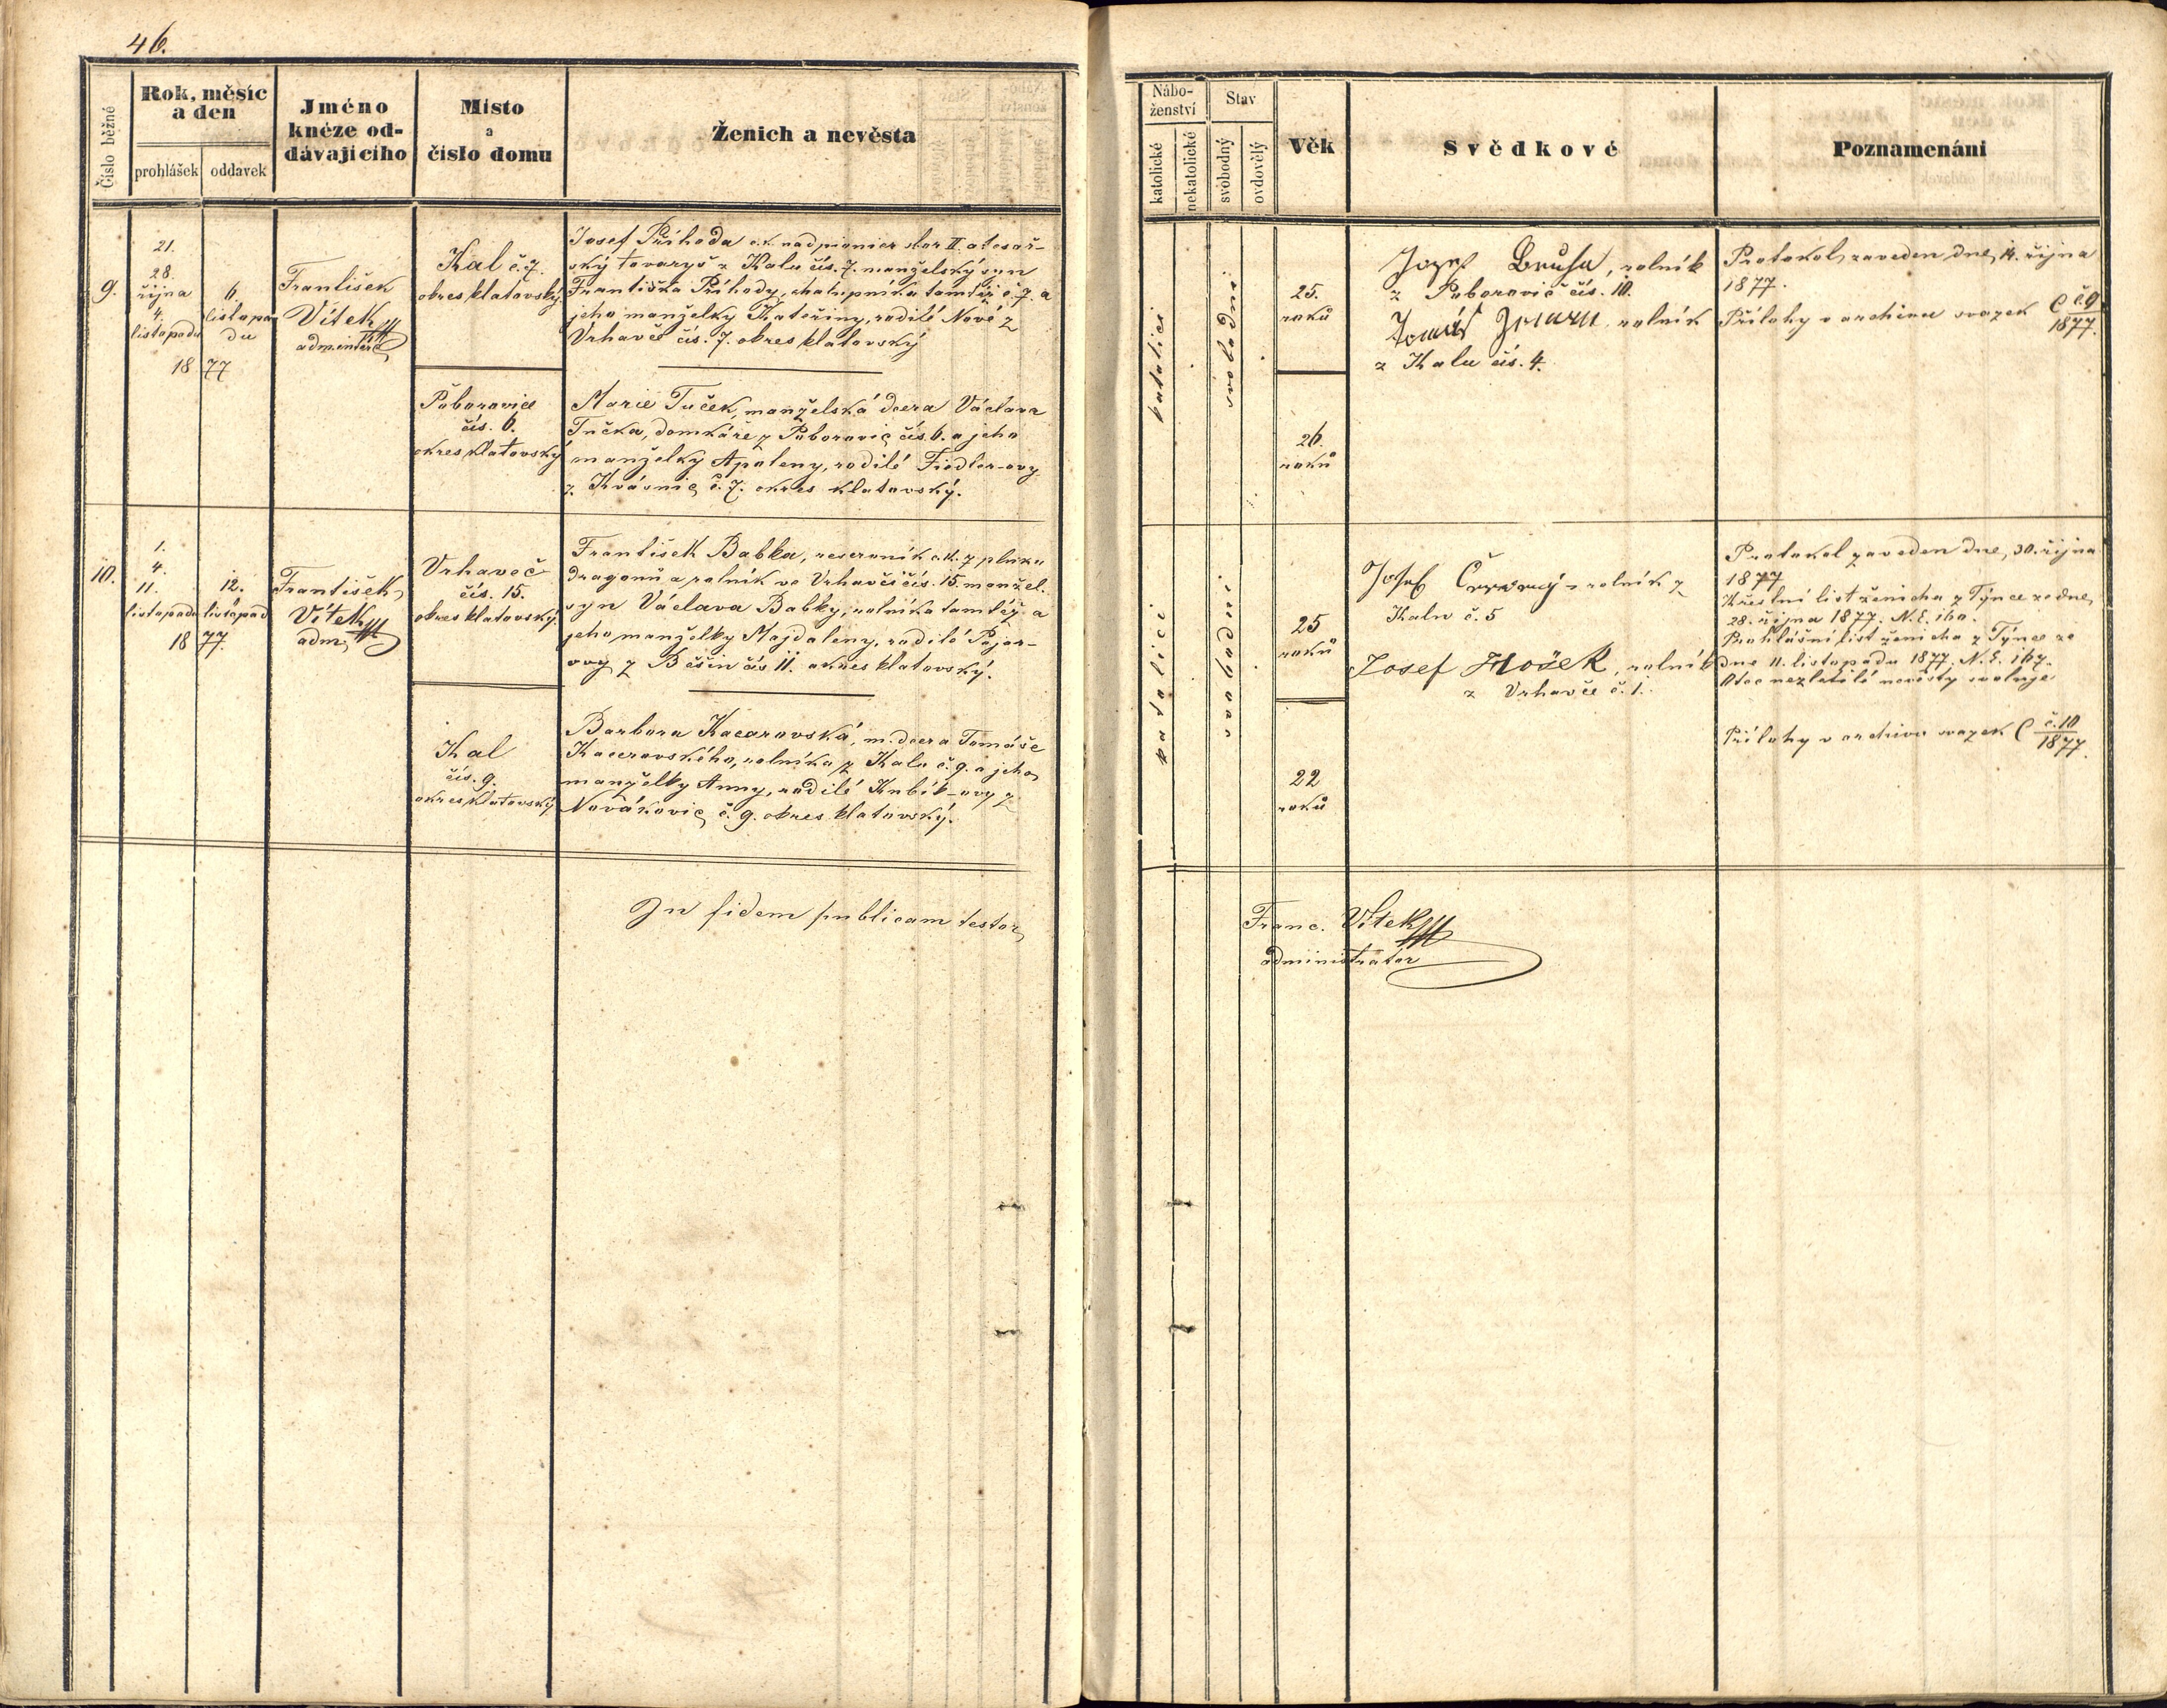 46.
Číslo běžné
Rok, měsíc
a den
prohlášek
oddavek
Jméno
kněze od-
dávajícího
Místo
a
číslo domu
Ženich a nevěsta
9.
21.
28.
října
4.
listopadu
6.
listopa
du
18 77
František
Vítek
Kal č. 7.
okres klatovský
Josef Příhoda c.k. nadpionier sbor II. a tesař-
ský tovaryš z Kalu čís. 7. manželský syn
Františka Příhody, chalupníka tamtéž č. 7. a
jeho manželky Kateřiny, rodilé Nové z
Vrhavče čís. 7. okres klatovský
Poborovice
čís. 6.
okres klatovský
Marie Tuček, manželská dcera Václava
Tučka, domkáře z Poborovic čís. 6. a jeho
manželky Apoleny, rodilé Fiedler-ovy
z Kvásnic č. 7. okres klatovský.
10.
1.
4.
11.
listopadu
12.
listopad
18 77.
František
Vítek
adm.
Vrhaveč
čís. 15.
okres klatovský
František Babka, reservník c.k. 7 pluku
dragonů a rolník ve Vrhavči čís. 15. manžel.
syn Václava Babky, rolníka tamtéž a
jeho manželky Majdaleny, rodilé Pojar-
ovy z Běšin čís 11. okres klatovský.
Kal
čís. 9.
okres klatovský
Barbora Kacerovská, m. dcera Tomáše
Kacerovského, rolníka z Kalu č. 9. a jeho
manželky Anny, rodilé Kubík-ovy z
Novákovic č. 9. okres klatovský.
In fidem publicam testor
Nábo-
ženství
katolické
nekatolické
Stav
svobodný
ovdovělý
Věk
Svědkové
Poznamenání
katolíci
svobodní
25.
roků
26.
roků
Josef rolník
z Poborovic čís. 10.
Tomáš rolník
z Kalu čís. 4.
Protokol zaveden dne 14. října
1877.
Přílohy v archivu svazek C č 9
1877.
katolíci
svobodní
25
roků
22
roků
Josef Červený rolník z
Kalu č. 5
Josef Hošek, rolník
z Vrhavče č. 1.
Protokol zaveden dne, 30. října
1877
Křestní list ženicha z Týnce ze dne
28. října 1877. N. E. 160.
Prohlášní list ženicha z Týnce ze
dne 11. listopadu 1877. N. E. 167.
Otec nezletilé nevěsty svoluje
Přílohy v archivu svazek C č. 10
1877.
Franc. Vítek
administrator